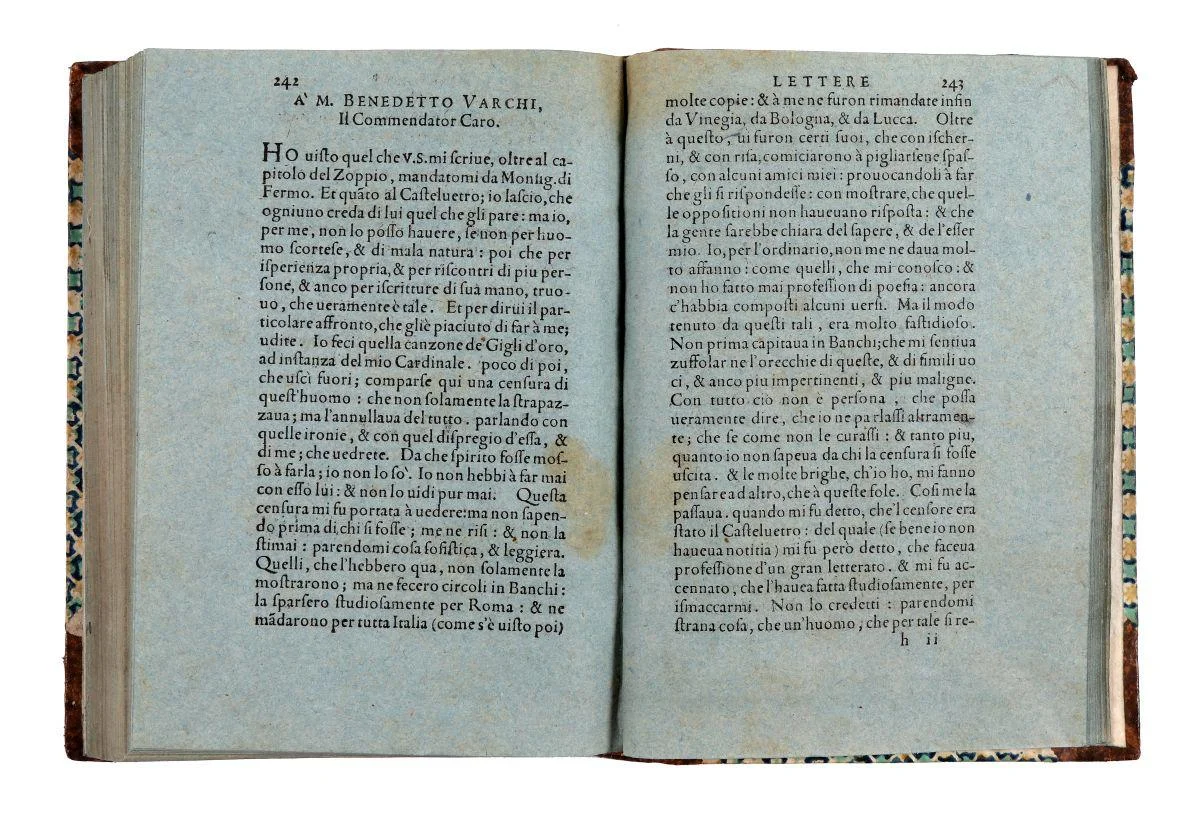 242
A' M. BENEDETTO VARCHI,
Il Commendator Caro.
HO uiſto quel che V.S. mi ſcriue, oltre al ca-
pitolo del Zoppio, mandatomi da Monſig. di
Fermo. Et quãto al Caſteluetro; io laſcio, che
ogniuno creda di lui quel che gli pare: ma io,
per me, non lo poſſo hauere, ſe non per huo-
mo ſcorteſe, & di mala natura: poi che per
iſperienza propria, & per riſcontri di piu per-
ſone, & anco per iſcritture di ſua mano, truo-
uo, che ueramente è tale. Et per dirui il par-
ticolare affronto, che gliè piaciuto di far à me;
udite. Io feci quella canzone de' Gigli d'oro,
ad inſtanza del mio Cardinale. poco di poi,
che uſcì fuori; comparſe qui una cenſura di
queſt'huomo: che non ſolamente la ſtrapaz-
zaua; ma l'annullaua del tutto. parlando con
quelle ironie, & con quel diſpregio d'eſſa, &
di me; che uedrete. Da che ſpirito foſſe moſ-
ſo à farla; io non lo sò. Io non hebbi à far mai
con eſſo lui: & non lo uidi pur mai. Queſta
cenſura mi fu portata à uedere: ma non ſapen-
do prima di chi ſi foſſe; me ne riſi: & non la
ſtimai: parendomi coſa ſofiſtica, & leggiera.
Quelli, che l'hebbero qua, non ſolamente la
moſtrarono; ma ne fecero circoli in Banchi:
la ſparſero ſtudioſamente per Roma: & ne
mãdarono per tutta Italia (come s'è uiſto poi)
LETTERE 243
molte copie: & à me ne furon rimandate infin
da Vinegia, da Bologna, & da Lucca. Oltre
à queſto, ui furon certi ſuoi, che con iſcher-
ni, & con riſa, comiciarono à pigliarſene ſpaſ-
ſo, con alcuni amici miei: prouocandoli à far
che gli ſi riſpondeſſe: con moſtrare, che quel-
le oppoſitioni non haueuano riſpoſta: & che
la gente ſarebbe chiara del ſapere, & de l'eſſer
mio. Io, per l'ordinario, non me ne daua mol-
to affanno: come quelli, che mi conoſco: &
non ho fatto mai profeſſion di poeſia: ancora
c'habbia compoſti alcuni uerſi. Ma il modo
tenuto da queſti tali, era molto faſtidioſo.
Non prima capitaua in Banchi; che mi ſentiua
zuffolar ne l'orecchie di queſte, & di ſimili uo
ci, & anco piu impertinenti, & piu maligne.
Con tutto ciò non è perſona, che poſſa
ueramente dire, che io ne parlaſſi altramen-
te; che ſe come non le curaſſi: & tanto piu,
quanto io non ſapeua da chi la cenſura ſi foſſe
uſcita. & le molte brighe, ch'io ho, mi fanno
penſare ad altro, che à queſte fole. Coſi me la
paſſaua. quando mi fu detto, che'l cenſore era
ſtato il Caſteluetro: del quale (ſe bene io non
haueua notitia) mi fu però detto, che faceua
profeſſione d'un gran letterato. & mi fu ac-
cennato, che l'hauea fatta ſtudioſamente, per
iſmaccarmi. Non lo credetti: parendomi
ſtrana coſa, che un'huomo, che per tale ſi re-
h ii